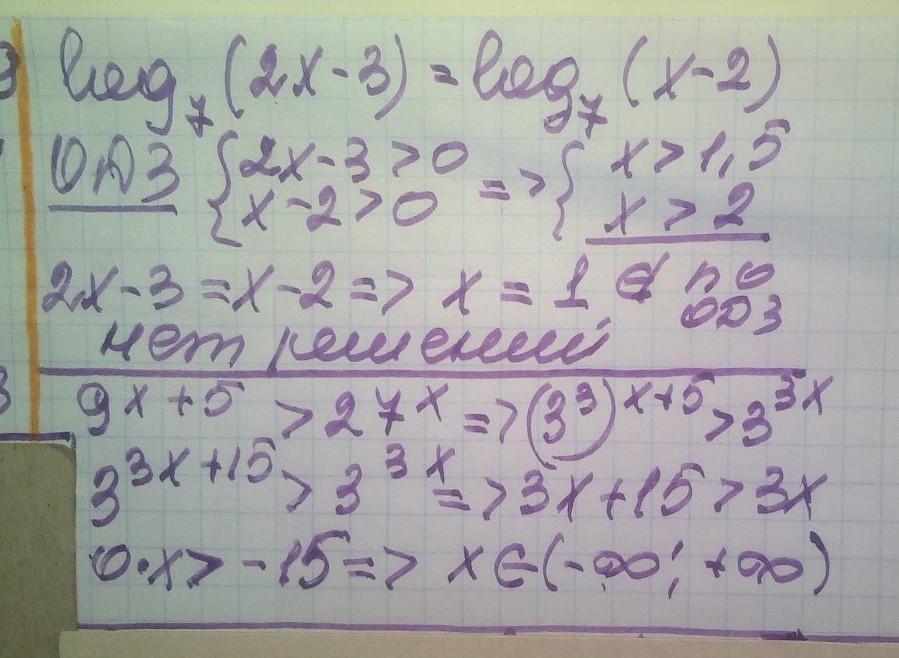 log₇(2x-3) = log₇(x-2)
ОДЗ {2x-3>0 => {x>1,5
x-2>0 x>2
2x-3=x-2=> x=1 ∉ по ОДЗ
нет решений
9^(x+5) > 27^x => (3³)^(x+5) > 3^(3x)
3^(3x+15) > 3^(3x) => 3x+15>3x
0·x > -15 => x∈(-∞; +∞)